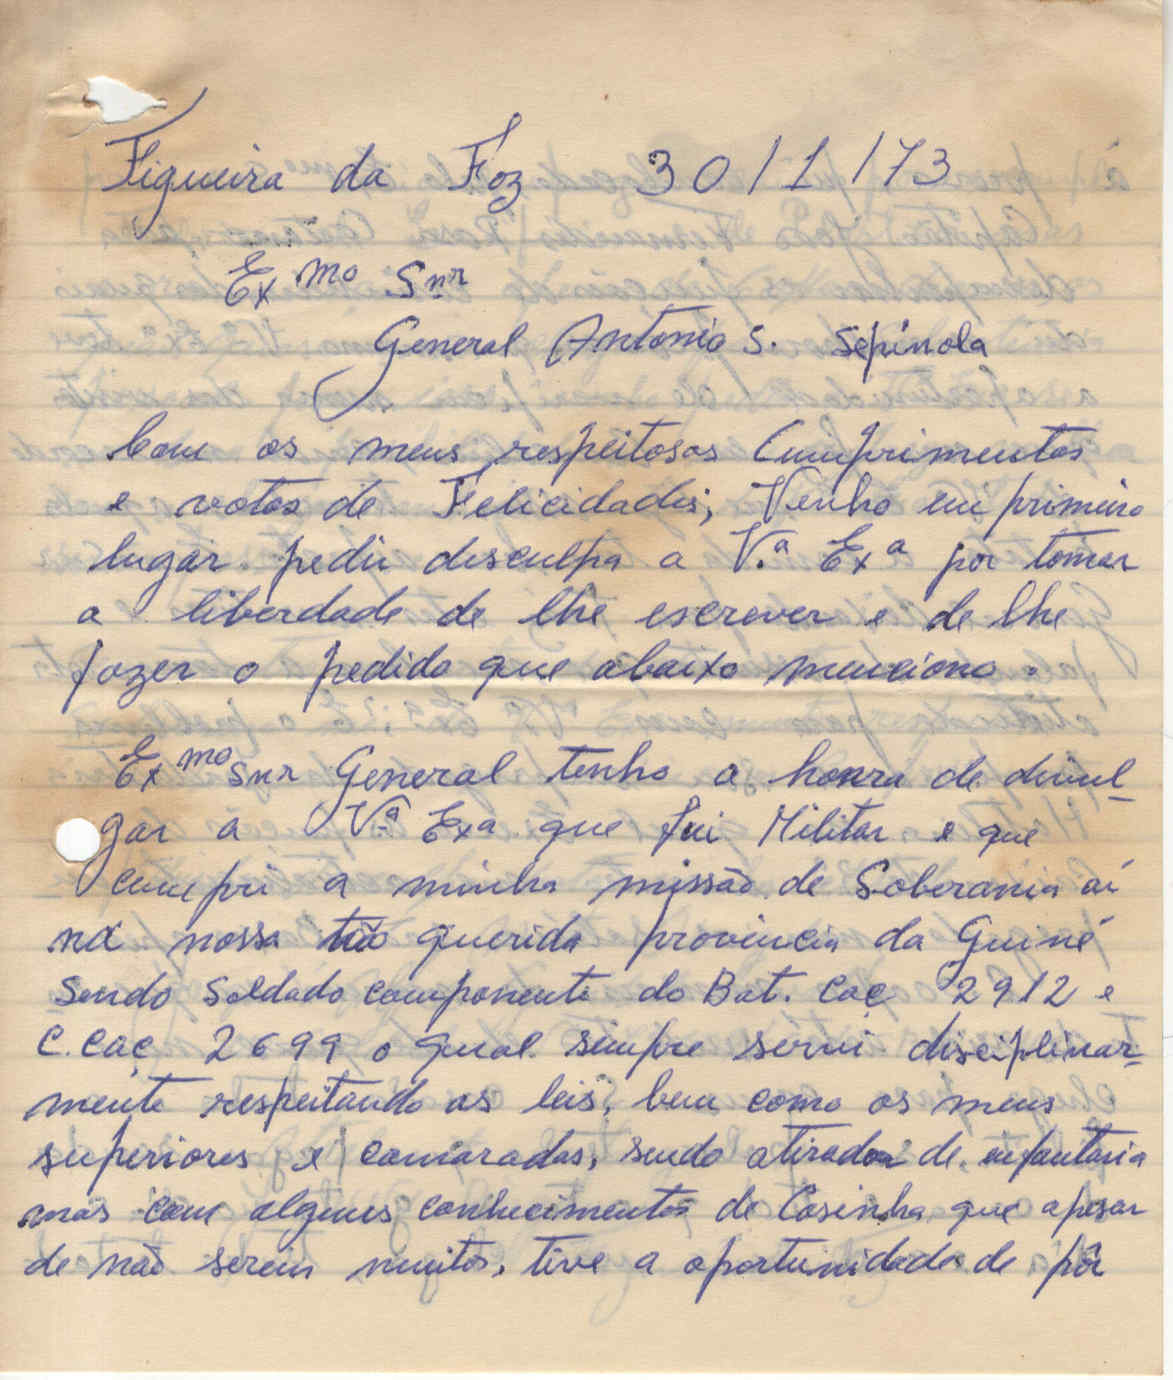 Figueira da Foz 30/1/73
Exmo Snr
General Antonio S. Sepinola
Com os meus respeitosos Cumprimentos
e votos de Felicidades, Venho em primeiro
lugar pedir desculpa a V.ª Exª por tomar
a liberdade de lhe escrever e de lhe
fazer o pedido que abaixo menciono.
Exmo Snr General tenho a honra de divul-
gar a Vª Exª que fui Militar e que
cumpri a minha missão de Soberania aí
na nossa tão querida provincia da Guiné
Sendo Soldado componente do Bat. Caç 2912 e
C. Caç 2699 o qual sempre servi disciplinar-
mente respeitando as leis, bem como os meus
superiores e camaradas, sendo atirador de infantaria
mas com algums conhecimentos de Cosinha que apesar
de não serem muitos, tive a oportunidade de pôr